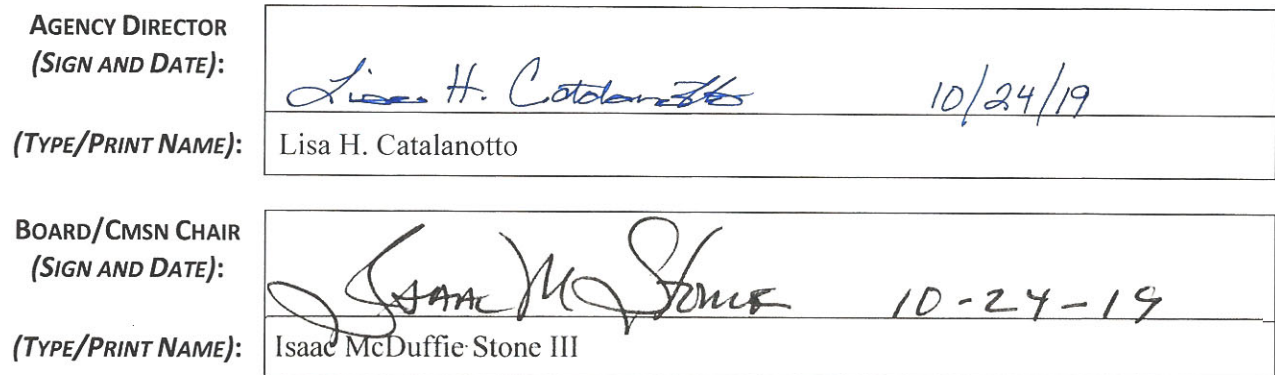 AGENCY DIRECTOR
(SIGN AND DATE):
Lisa H. Catalanotto 10/24/19
(TYPE/PRINT NAME): Lisa H. Catalanotto
BOARD/CMSN CHAIR
(SIGN AND DATE):
Isaac M Stone 10-24-19
(TYPE/PRINT NAME): Isaac McDuffie Stone III